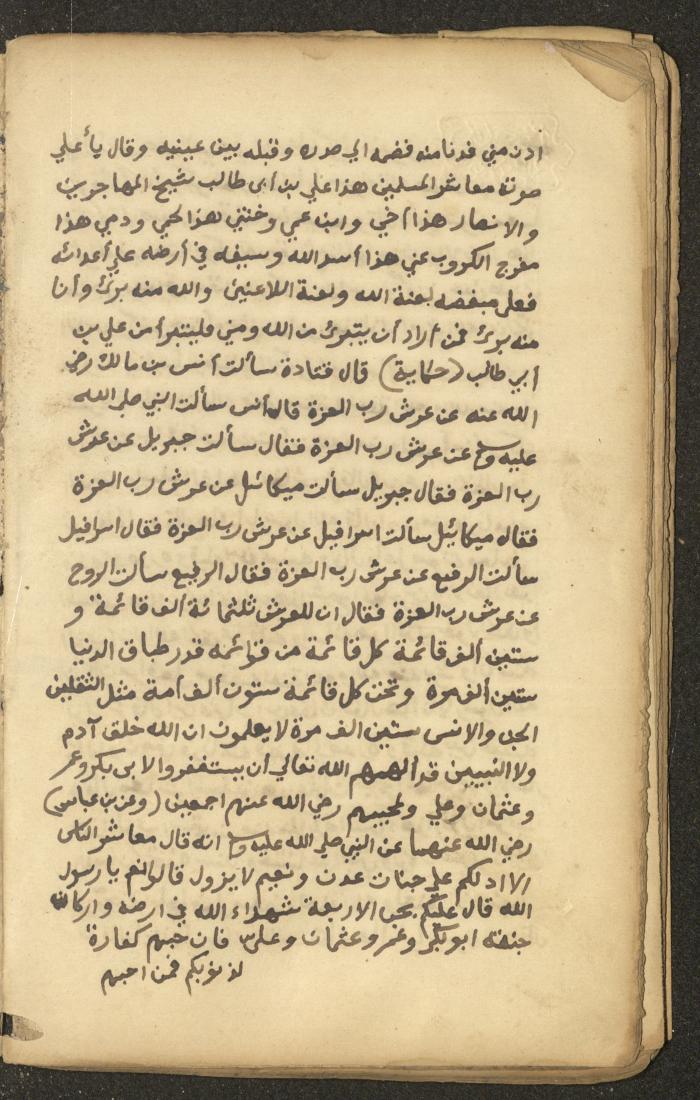 ادن مني فدنا منه فضمه الي صدره وقبله بين عينيه وقال يا علي
معاشر المسلمين هذا علي بن ابي طالب شيخ المهاجرين
والانصار هذا أخي وابن عمي وختني هذا لحمي ودمي هذا
مفرج الكروب عني هذا أسد الله وسيفه في أرضه علي أعدائه
فعلي مبغضه لعنة الله ولعنة اللاعنين والله منه برئ وأنا
منه برئ فمن أراد أن يتبرئ من الله ومني فليتبرأ من علي بن
أبي طالب (حكاية) قال قتادة سألت أنس بن مالك رضي
الله عنه عن عرش رب العزة قال أنس سألت النبي صلى الله
عليه وسلم عن عرش رب العزة فقال سألت جبريل عن عرش
رب العزة فقال جبريل سألت ميكائيل عن عرش رب العزة
فقال ميكائيل سألت اسرافيل عن عرش رب العزة فقال اسرافيل
سألت الرفيع عن عرش رب العزة فقال الرفيع سألت الروح
عن عرش رب العزة فقال ان للعرش ثلثمائة ألف قائمة و
ستين ألف قائمة كل قائمة من قوائمه قدر طباق الدنيا
ستين ألف مرة وتحت كل قائمة ستون ألف أمة مثل الثقلين
الجن والانس ستين الف مرة لا يعلمون ان الله خلق آدم
ولا النبيين قد ألهمهم الله تعالي أن يستغفروا لابي بكر وعمر
وعثمان وعلي ولمحبيهم رضي الله عنهم اجمعين (وعن بن عباس)
رضي الله عنهما عن النبي صلي الله عليه وسلم انه قال معاشر الناس
الا ادلكم علي جنات عدن ونعيم لا يزول قالوا نعم يا رسول
الله قال عليكم بحب الاربعة شهداء الله في ارضه واركان
جنته ابو بكر وعمر وعثمان وعلي فان حبهم كفارة
لذنوبكم فمن احبهم